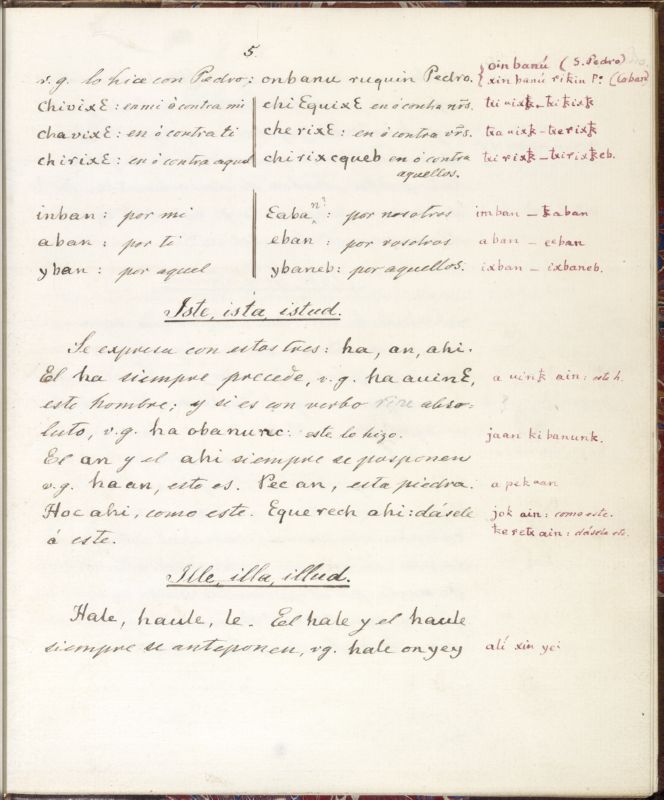 5.
v.g. lo hice con Pedro; onbanu ruquin Pedro. { oin banú (S. Pedro)
xin banú rikin P: (Coban)
chivixƐ: en mi ó contra mi chiƐquixƐ en ó contra nrs. txi uixꝁ - txi ꝁixꝁ
chavixƐ: en ó contra ti cherixƐ: en ó contra vrs. txa uixꝁ - txerixꝁ
chirixƐ: en ó contra aquel chirixcqueb en ó contra aquellos. txi rixꝁ - txirixꝁeb.
inban: por mi Ɛaban: por nosotros imban - ꝁaban
aban: por ti eban: por vosotros aban - eeban
yban: por aquel ybaneb: por aquellos. ixban - ixbaneb.
Iste, ista, istud.
Se expresa con estos tres: ha, an, ahi.
El ha siempre precede, v.g. ha auinƐ, a uinꝁ ain: este h.
este hombre; y si es con verbo abso:
luto, v.g. ha obanunc: este lo hizo. jaan ki banunk.
El an y el ahi siempre se posponen
v.g. haan, esto es. Pec an, esta piedra. a pek aan
Hoc ahi, como este. Eque rech ahi: dásele jok ain: como este.
á este. ꝁe retx ain: dásele etc.
Ille, illa, illud.
Hale, haule, le. El hale y el haule
siempre se anteponen, vg. hale on yey alí xin yei